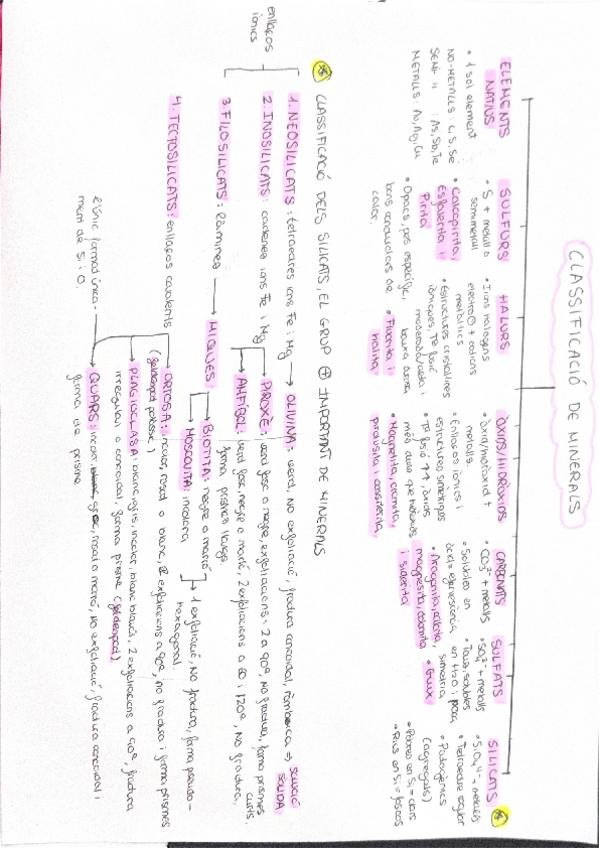 CLASSIFICACIÓ DE MINERALS
ELEMENTS
NATIUS
• 1 sol element
NO-METALLS: C, S, Se
SEMI- " : As, Sb, Te
METALLS: Au, Ag, Cu
SULFURS
• S + metall o
semimetall
• Calcopirita,
Esfalerita i
Pirita
• Opacs, pes específic,
bons conductors de
calor.
HALURS
• Ions halògens
electro⊖ + cations
metàl·lics
• Estructures cristal·lines
iòniques, Tª fusió
moderada/
baixa duresa
• Fluorita i
Halina
ÒXIDS/HIDRÒXIDS
• Òxid/hidròxid +
metalls.
• Enllaços iònics i
estructures simètriques
• Tª fusió ↑↑, òxids
més durs que hidròxids
• Magnetita, cromita,
pirolusita i cassiterita,
CARBONATS
• CO₃²⁻ + metalls
• Solubles en
àcid = efervescència
• Aragonita, calcita,
magnesita, dolomita
i siderita
SULFATS
• SO₄²⁻ + metalls
• Tous, solubles
en H₂O i poca
simetria
• Guix
SILICATS *
• SiO₄⁴⁻ + metalls
• Tetraedre
(agregats)
• Pobres en Si = clars
• Rics en Si = foscos
* CLASSIFICACIÓ DELS SILICATS, EL GRUP ⊕ IMPORTANT DE MINERALS
enllaços
iònics
1. NEOSILICATS: tetraedres ions Fe i Mg → OLIVINA: verd, NO exfoliació, fractura concoidal, ròmbica ⇒ SOLUCIÓ
SÒLIDA
2. INOSILICATS: cadenes ions Fe i Mg
PIROXÈ: verd fosc o negre, exfoliacions: 2 a 90º, NO fractura, forma prismes
curts.
AMFÍBOL: verd fosc, negre o marró, 2 exfoliacions a 60 i 120º, NO fractura,
forma prismes llargs.
3. FILOSILICATS: làmines → MIQUES:
BIOTITA: negre o marró
MOSCOVITA: incolora
1 exfoliació, NO fractura, forma pseudo-
hexagonal
4. TECTOSILICATS: enllaços covalents
ORTOSA: incolor, rosat o blanc, 2 exfoliacions a 90º, no fractura i forma prismes
(feldespat potàssic)
PLAGIOCLASA: blanc, gris, incolor, blanc blavós, 2 exfoliacions a 90º, fractura
irregular o concoidal, forma prisma (feldespat)
L'únic format única-
ment de Si i O.
QUARS: incolor, gris, rosat o marró, no exfoliació, fractura concoidal i
forma de prisme